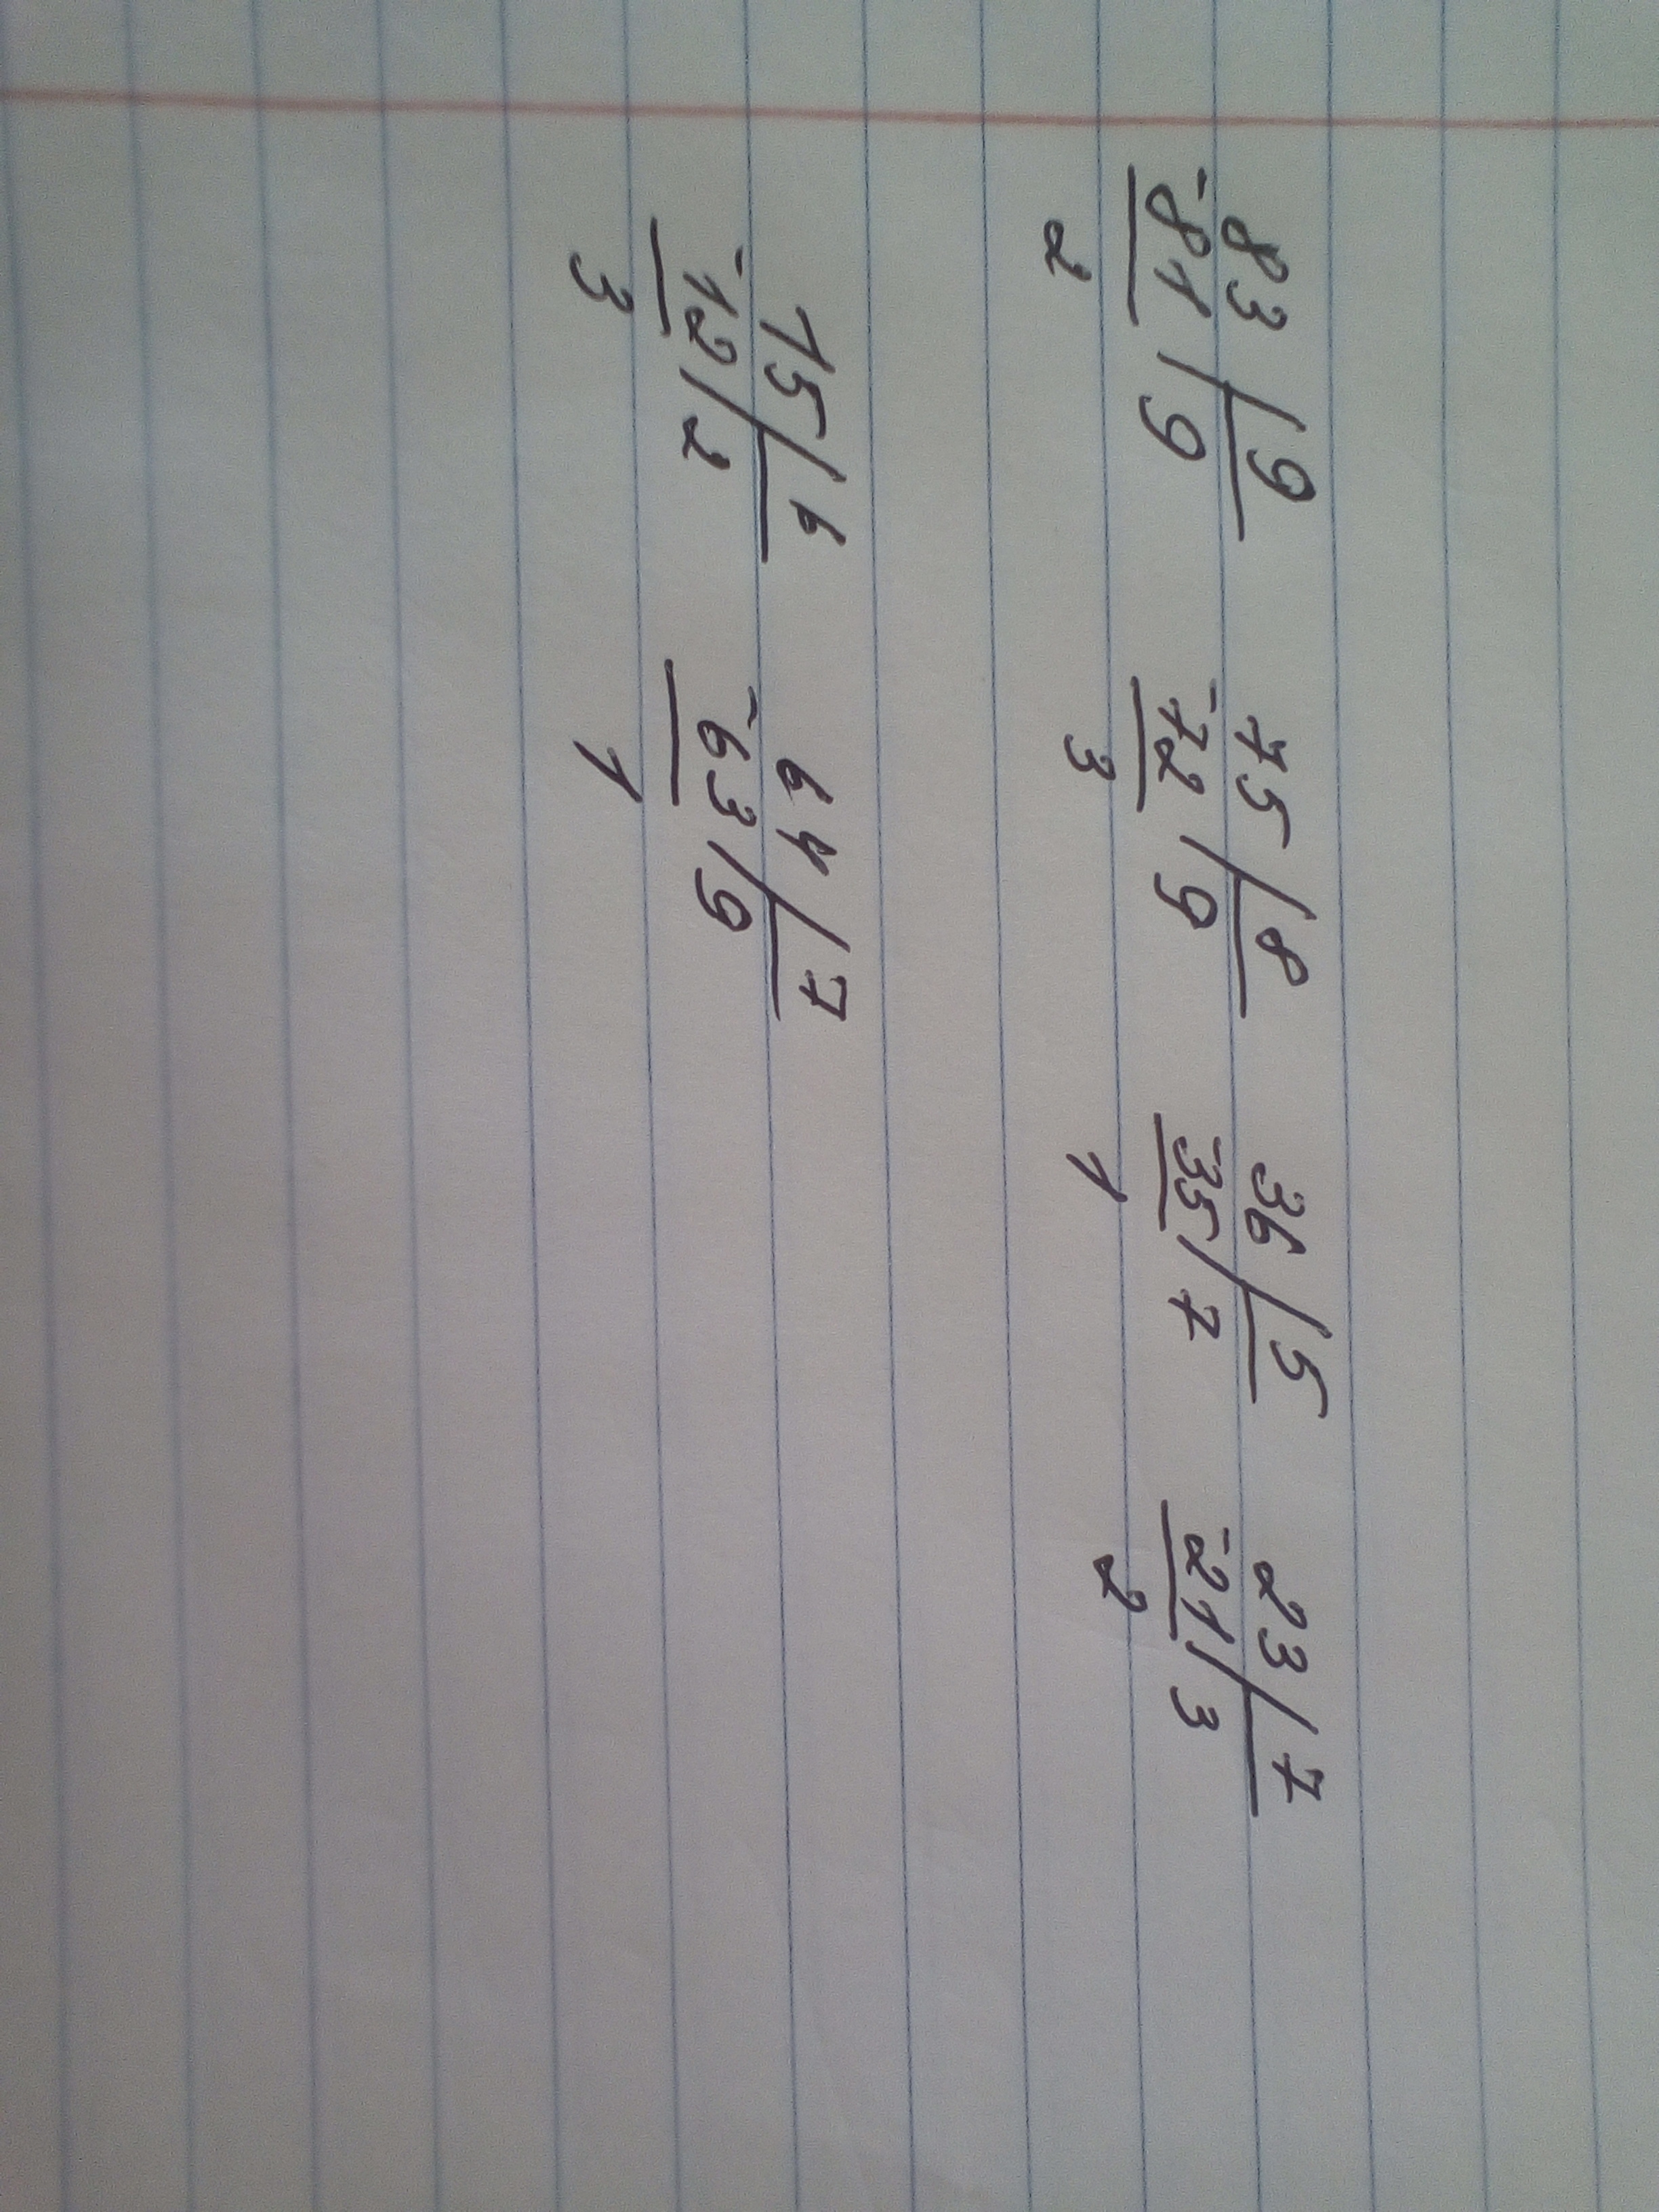 83 | 9 75 | 8 36 | 5 23 | 7
-81 | 9 -72 | 9 -35 | 7 -21 | 3
2 3 1 2
15 | 6 64 | 7
-12 | 2 -63 | 9
3 1